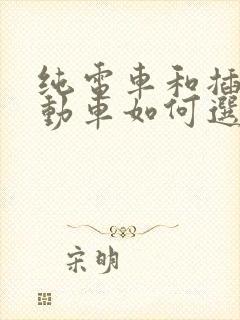 纯電車和插
動車如何選
宋明